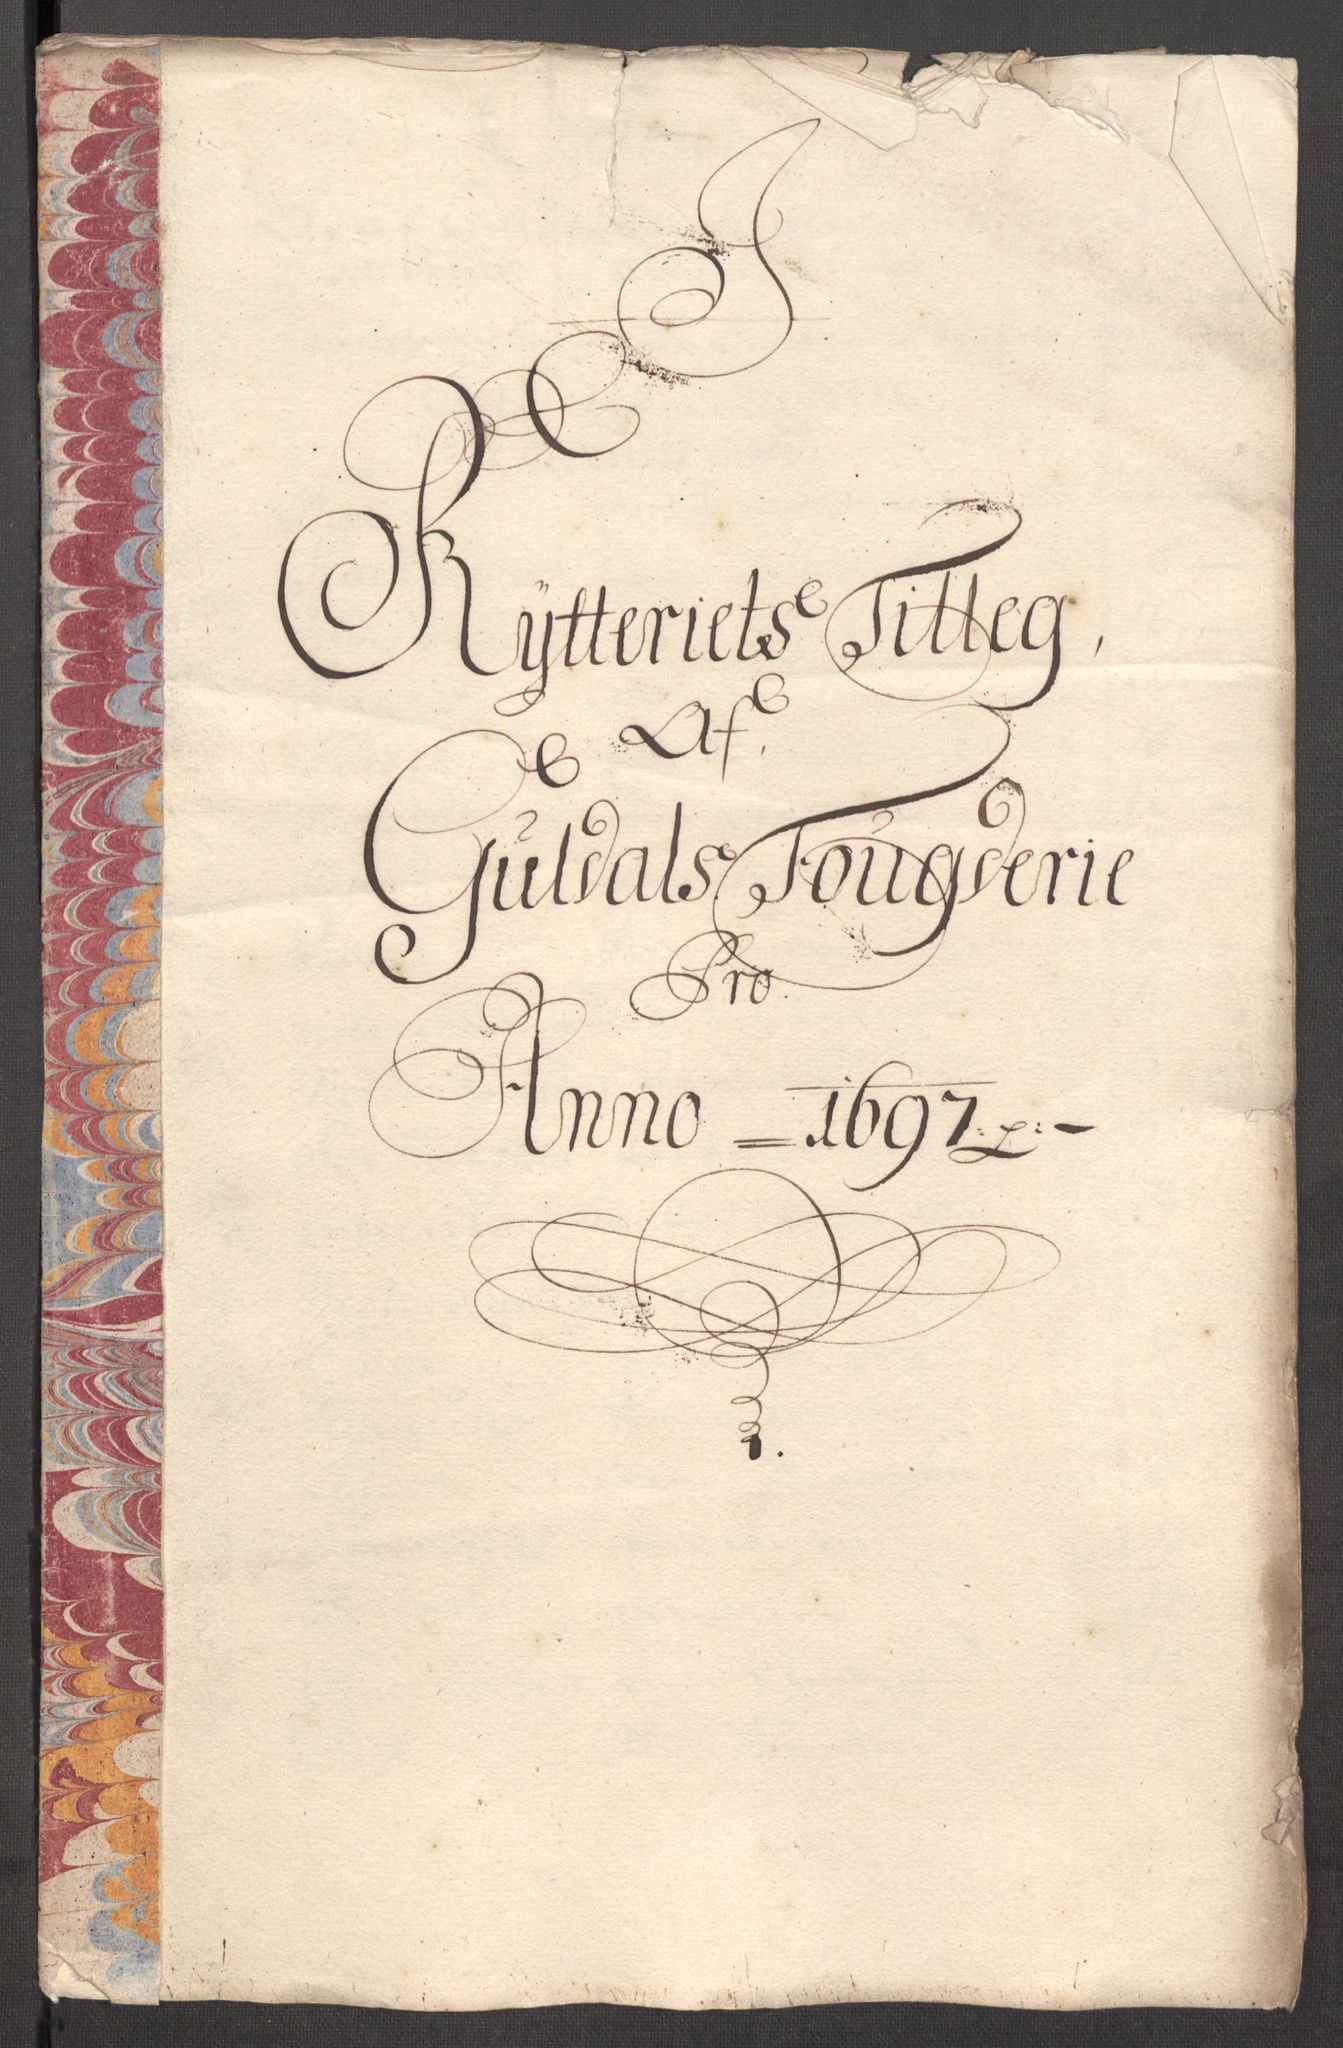 I
Rÿtteriets Tilleg,
Af.
Guldals Fougderie
Pro.
Anno = 1697